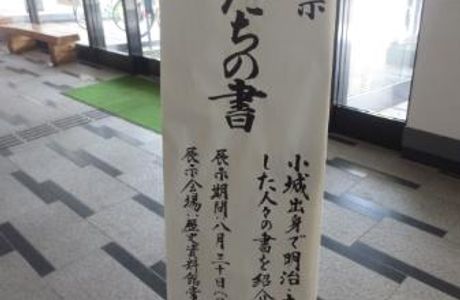 示
たちの書
小城出身で明治・
した人々の書を紹介
展示期間:八月三十日(
展示会場:歴史資料館常